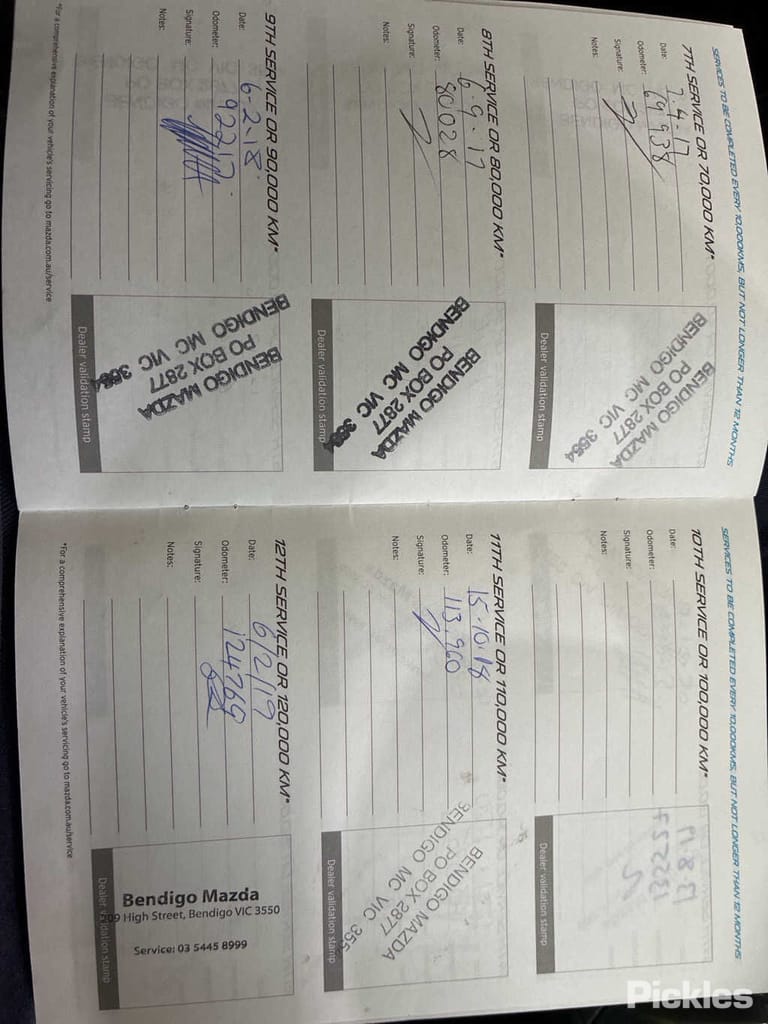 SERVICES TO BE COMPLETED EVERY 10,000KMS, BUT NOT LONGER THAN 12 MONTHS
7TH SERVICE OR 70,000 KM*
Date: 7.4.17
Odometer: 69938
Signature:
Notes:
BENDIGO MAZDA
PO BOX 2877
BENDIGO MC VIC 3554
Dealer validation stamp
8TH SERVICE OR 80,000 KM*
Date: 6.9.17
Odometer: 80028
Signature:
Notes:
BENDIGO MAZDA
PO BOX 2877
BENDIGO MC VIC 3554
Dealer validation stamp
9TH SERVICE OR 90,000 KM*
Date: 6-2-18
Odometer: 92217
Signature:
Notes:
BENDIGO MAZDA
PO BOX 2877
BENDIGO MC VIC 3554
Dealer validation stamp
*For a comprehensive explanation of your vehicle's servicing go to mazda.com.au/service
SERVICES TO BE COMPLETED EVERY 10,000KMS, BUT NOT LONGER THAN 12 MONTHS
10TH SERVICE OR 100,000 KM*
Date:
Odometer:
Signature:
Notes:
Dealer validation stamp
11TH SERVICE OR 110,000 KM*
Date: 15.10.18
Odometer: 113,960
Signature:
Notes:
BENDIGO MAZDA
PO BOX 2877
BENDIGO MC VIC 3554
Dealer validation stamp
12TH SERVICE OR 120,000 KM*
Date: 6/2/19
Odometer: 124769
Signature:
Notes:
Bendigo Mazda
High Street, Bendigo VIC 3550
Service: 03 5445 8999
Dealer validation stamp
*For a comprehensive explanation of your vehicle's servicing go to mazda.com.au/service
Pickles